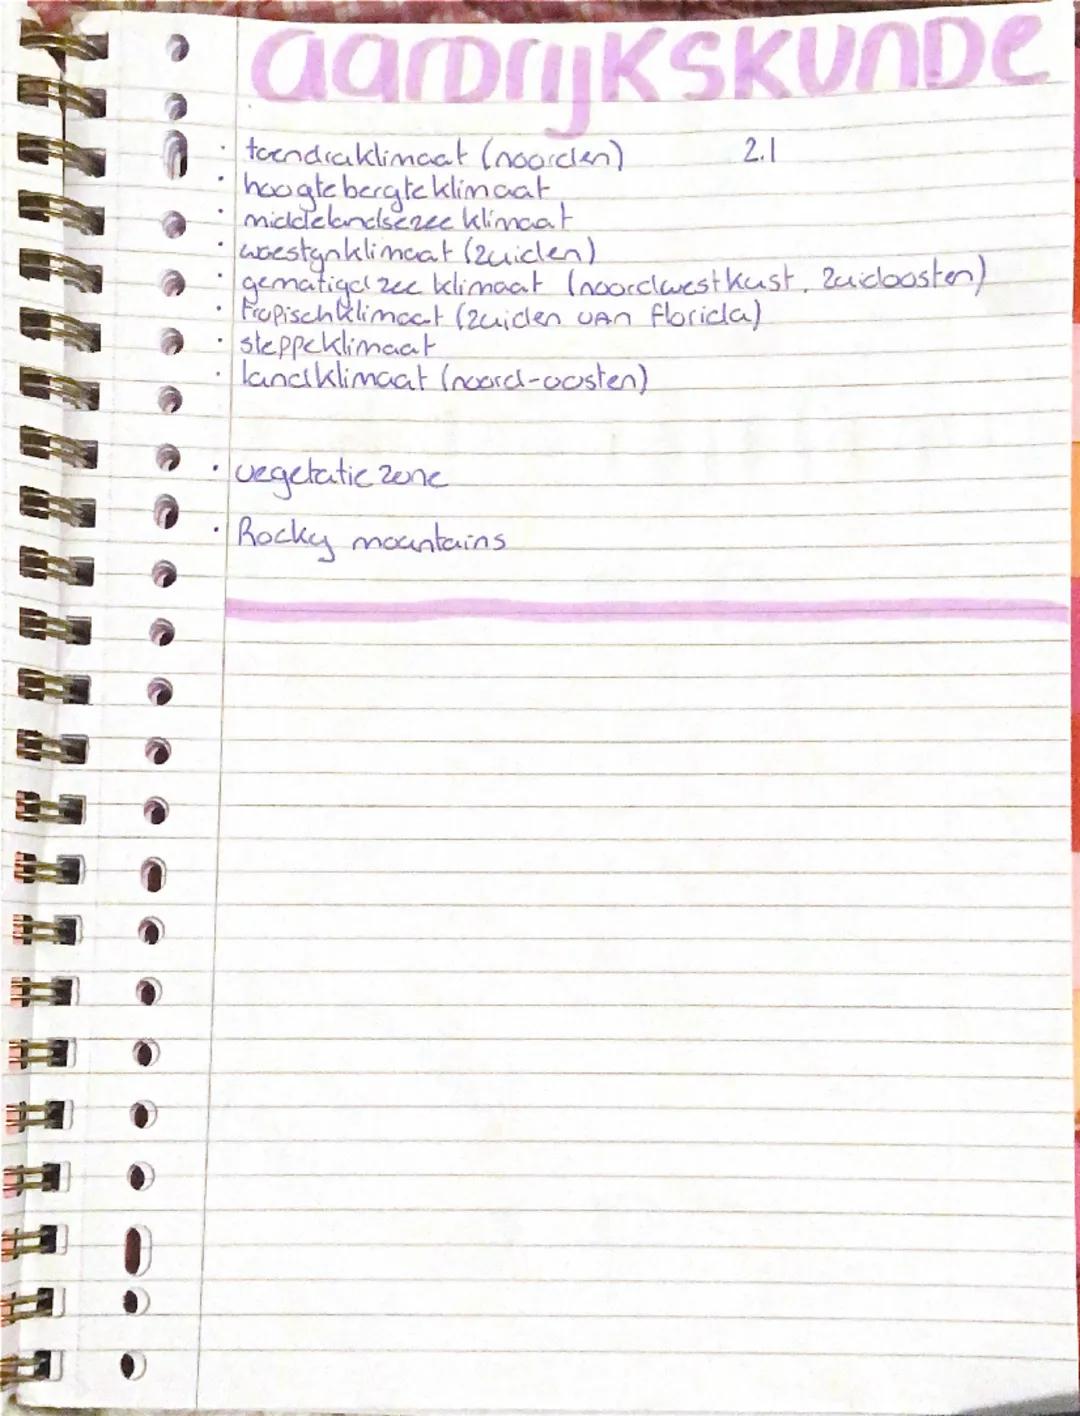 aardrijkskunde
· toendraklimaat (noorden) 2.1
· hoogtebergteklimaat
· middelandsezee klimaat
· woestynklimaat (zuiden)
· gematigd zee klimaat (noordwestkust, zuidoosten)
· tropischklimaat (zuiden van florida)
· steppeklimaat
· landklimaat (noord-oosten)
· vegetatie zone
· Rocky mountains